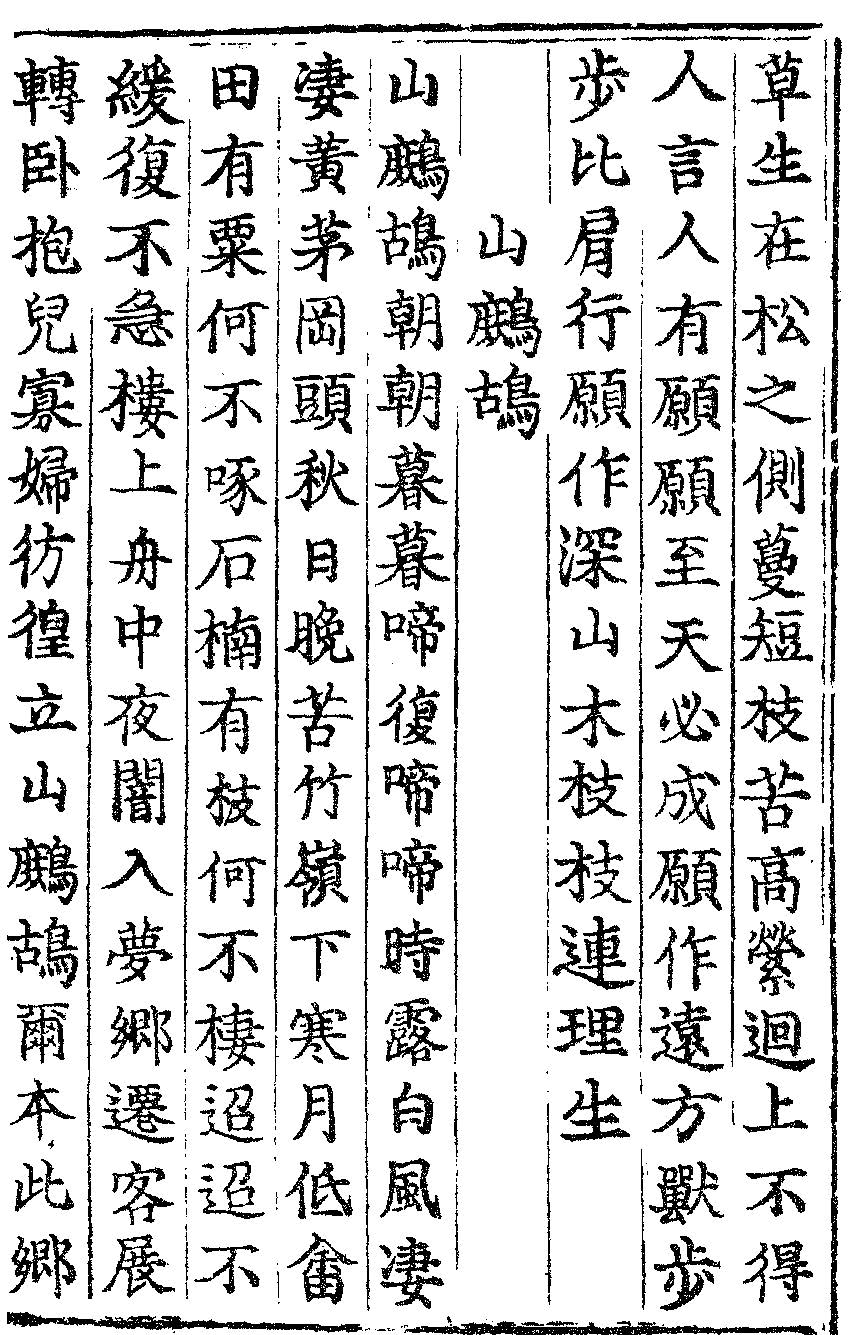 草生在松之側蔓短枝苦高縈迴上不得
人言人有願願至天必成願作遠方獸步
步比肩行願作深山木枝枝連理生
山鷓鴣
山鷓鴣朝朝暮暮啼復啼啼時露白風凄
凄黃茅岡頭秋日晚苦竹嶺下寒月低畬
田有粟何不啄石楠有枝何不棲迢迢不
緩復不急樓上舟中夜闇入夢鄉遷客展
轉卧抱兒寡婦彷徨立山鷓鴣爾本此鄉